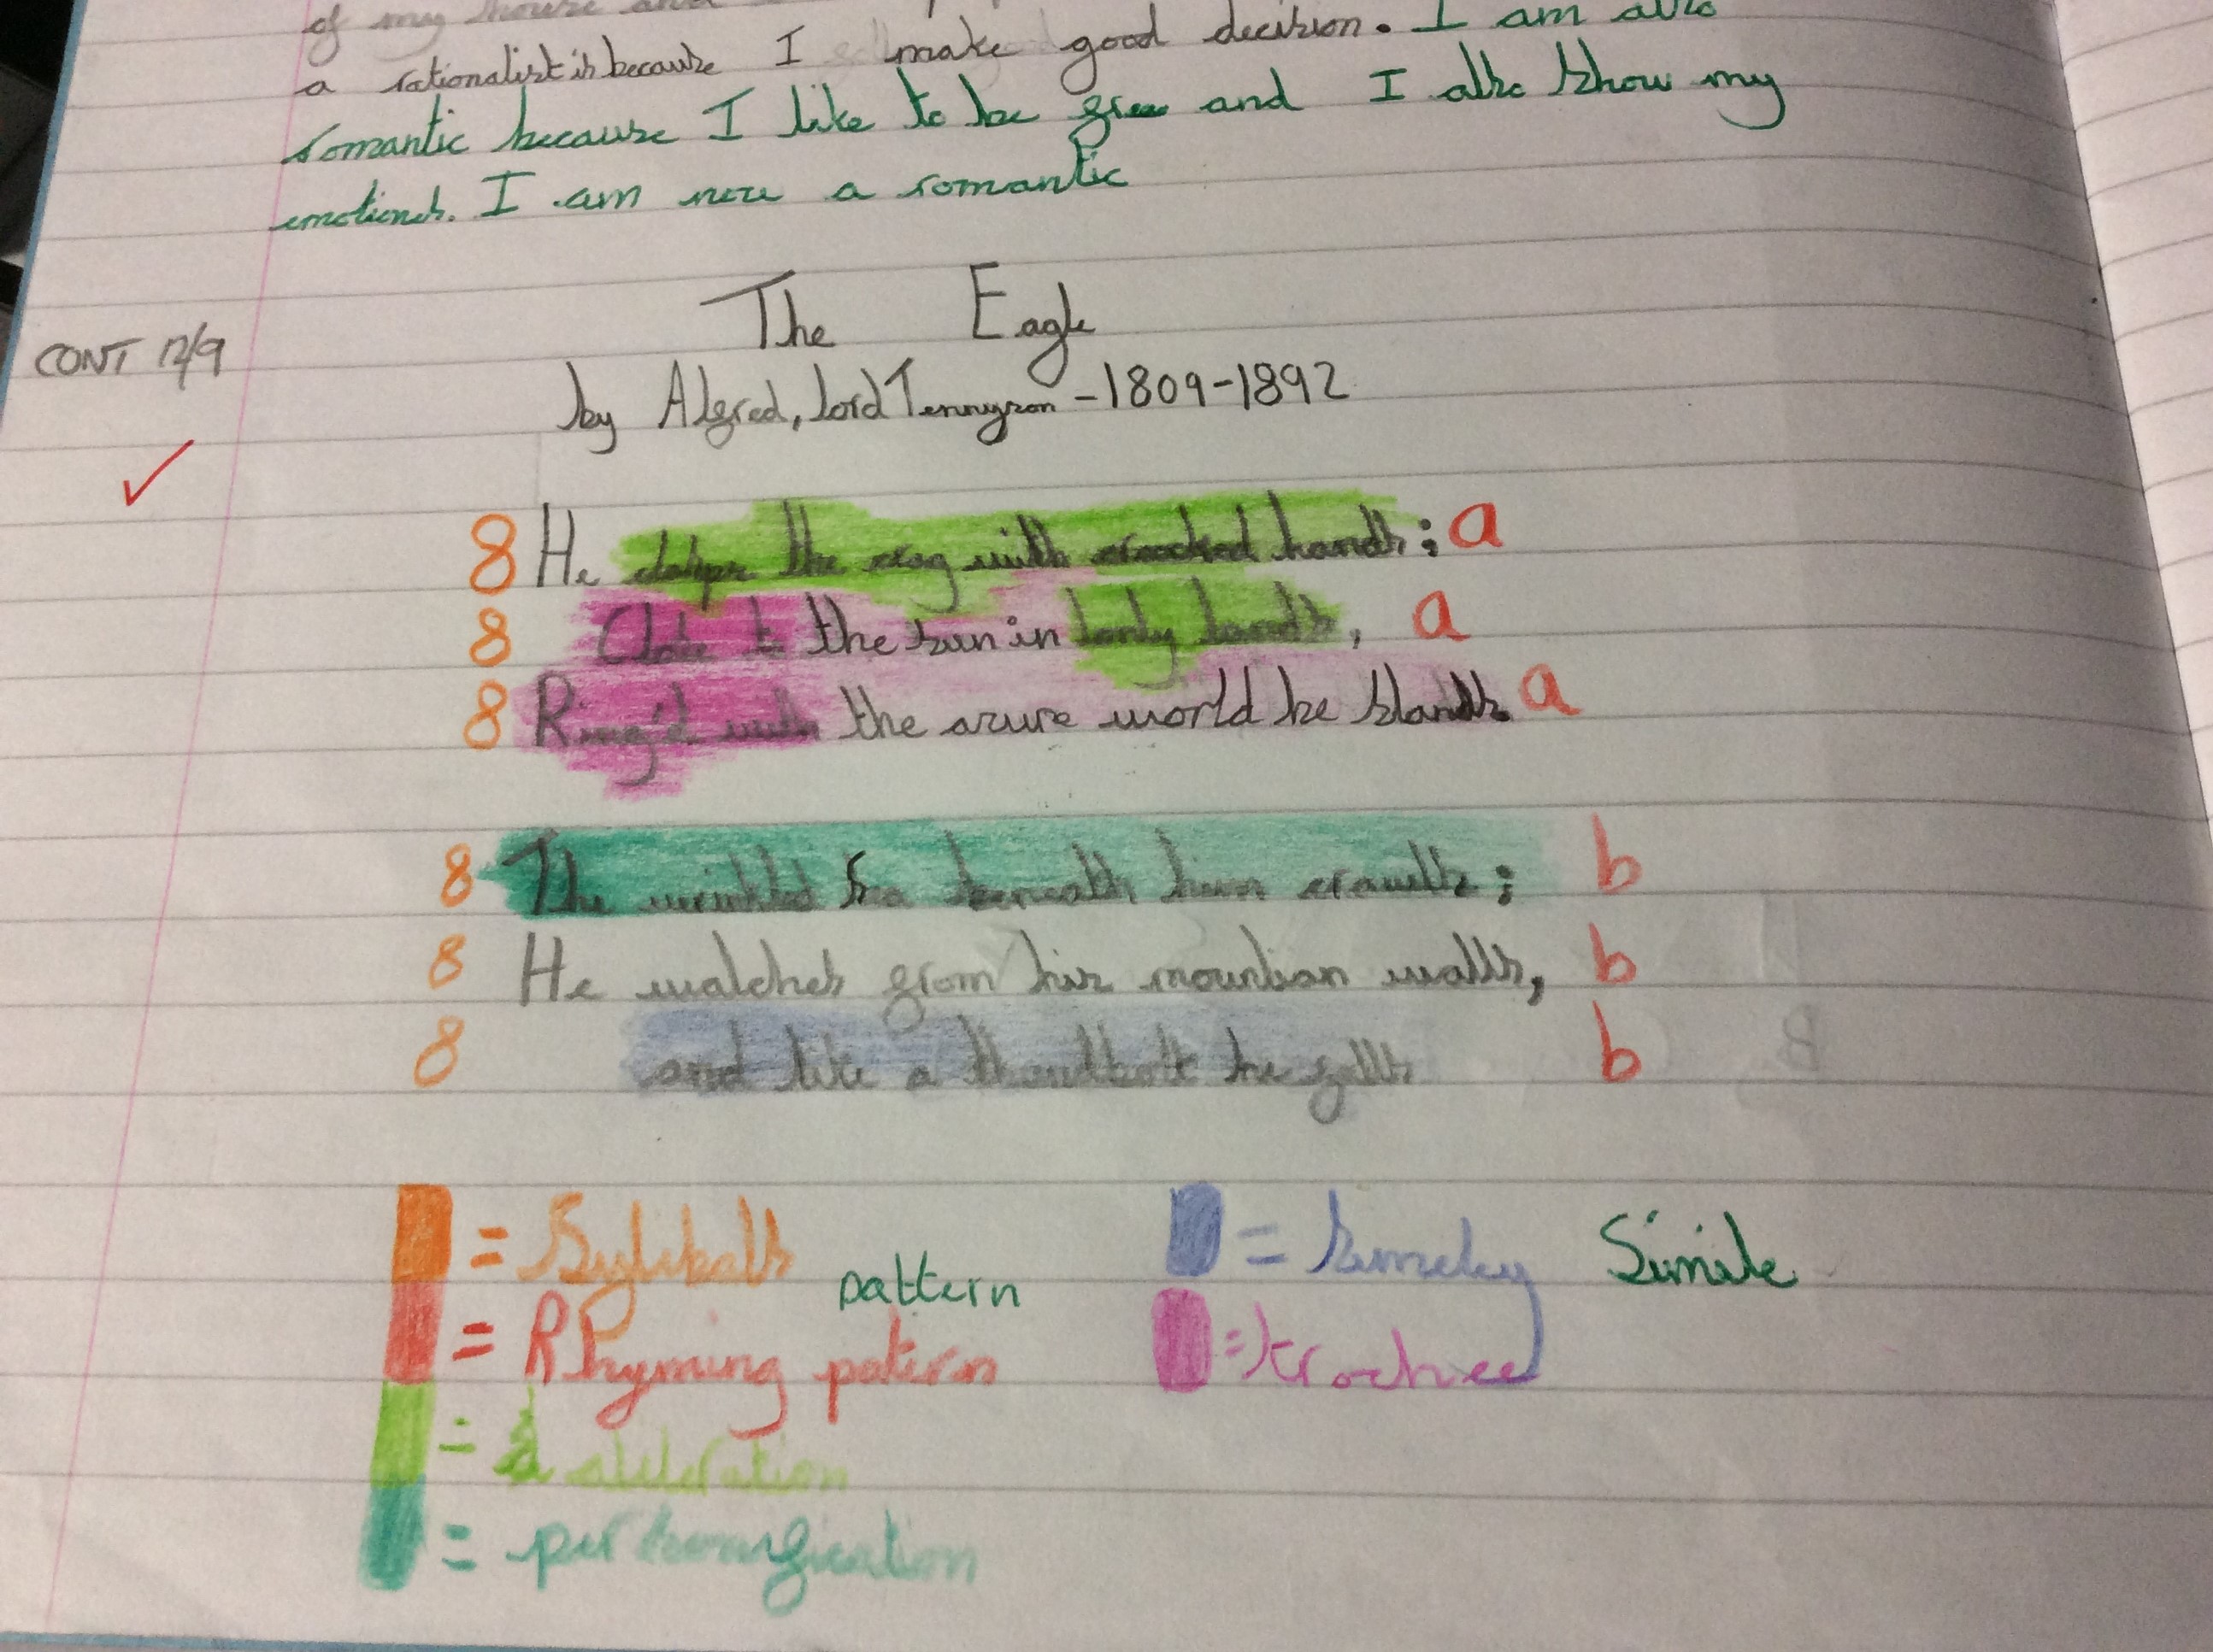 of my house and
a rationalist is because I make good decision. I am also
romantic because I like to be free and I also show my
emotions. I am now a romantic
The Eagle
CONT 12/9
by Alfred, lord Tennyson - 1809-1892
8 He clasps the crag with crooked hands; a
8 Close to the sun in lonly lands, a
8 Ring'd with the azure world he stands. a
8 The wrinkled sea beneath him crawls; b
8 He watches from his mountian walls, b
8 and like a thundbolt he falls b
= Syliballs = Simeley Simile
pattern
= Rhyming patern = trochee
= aliteration
= personyfication